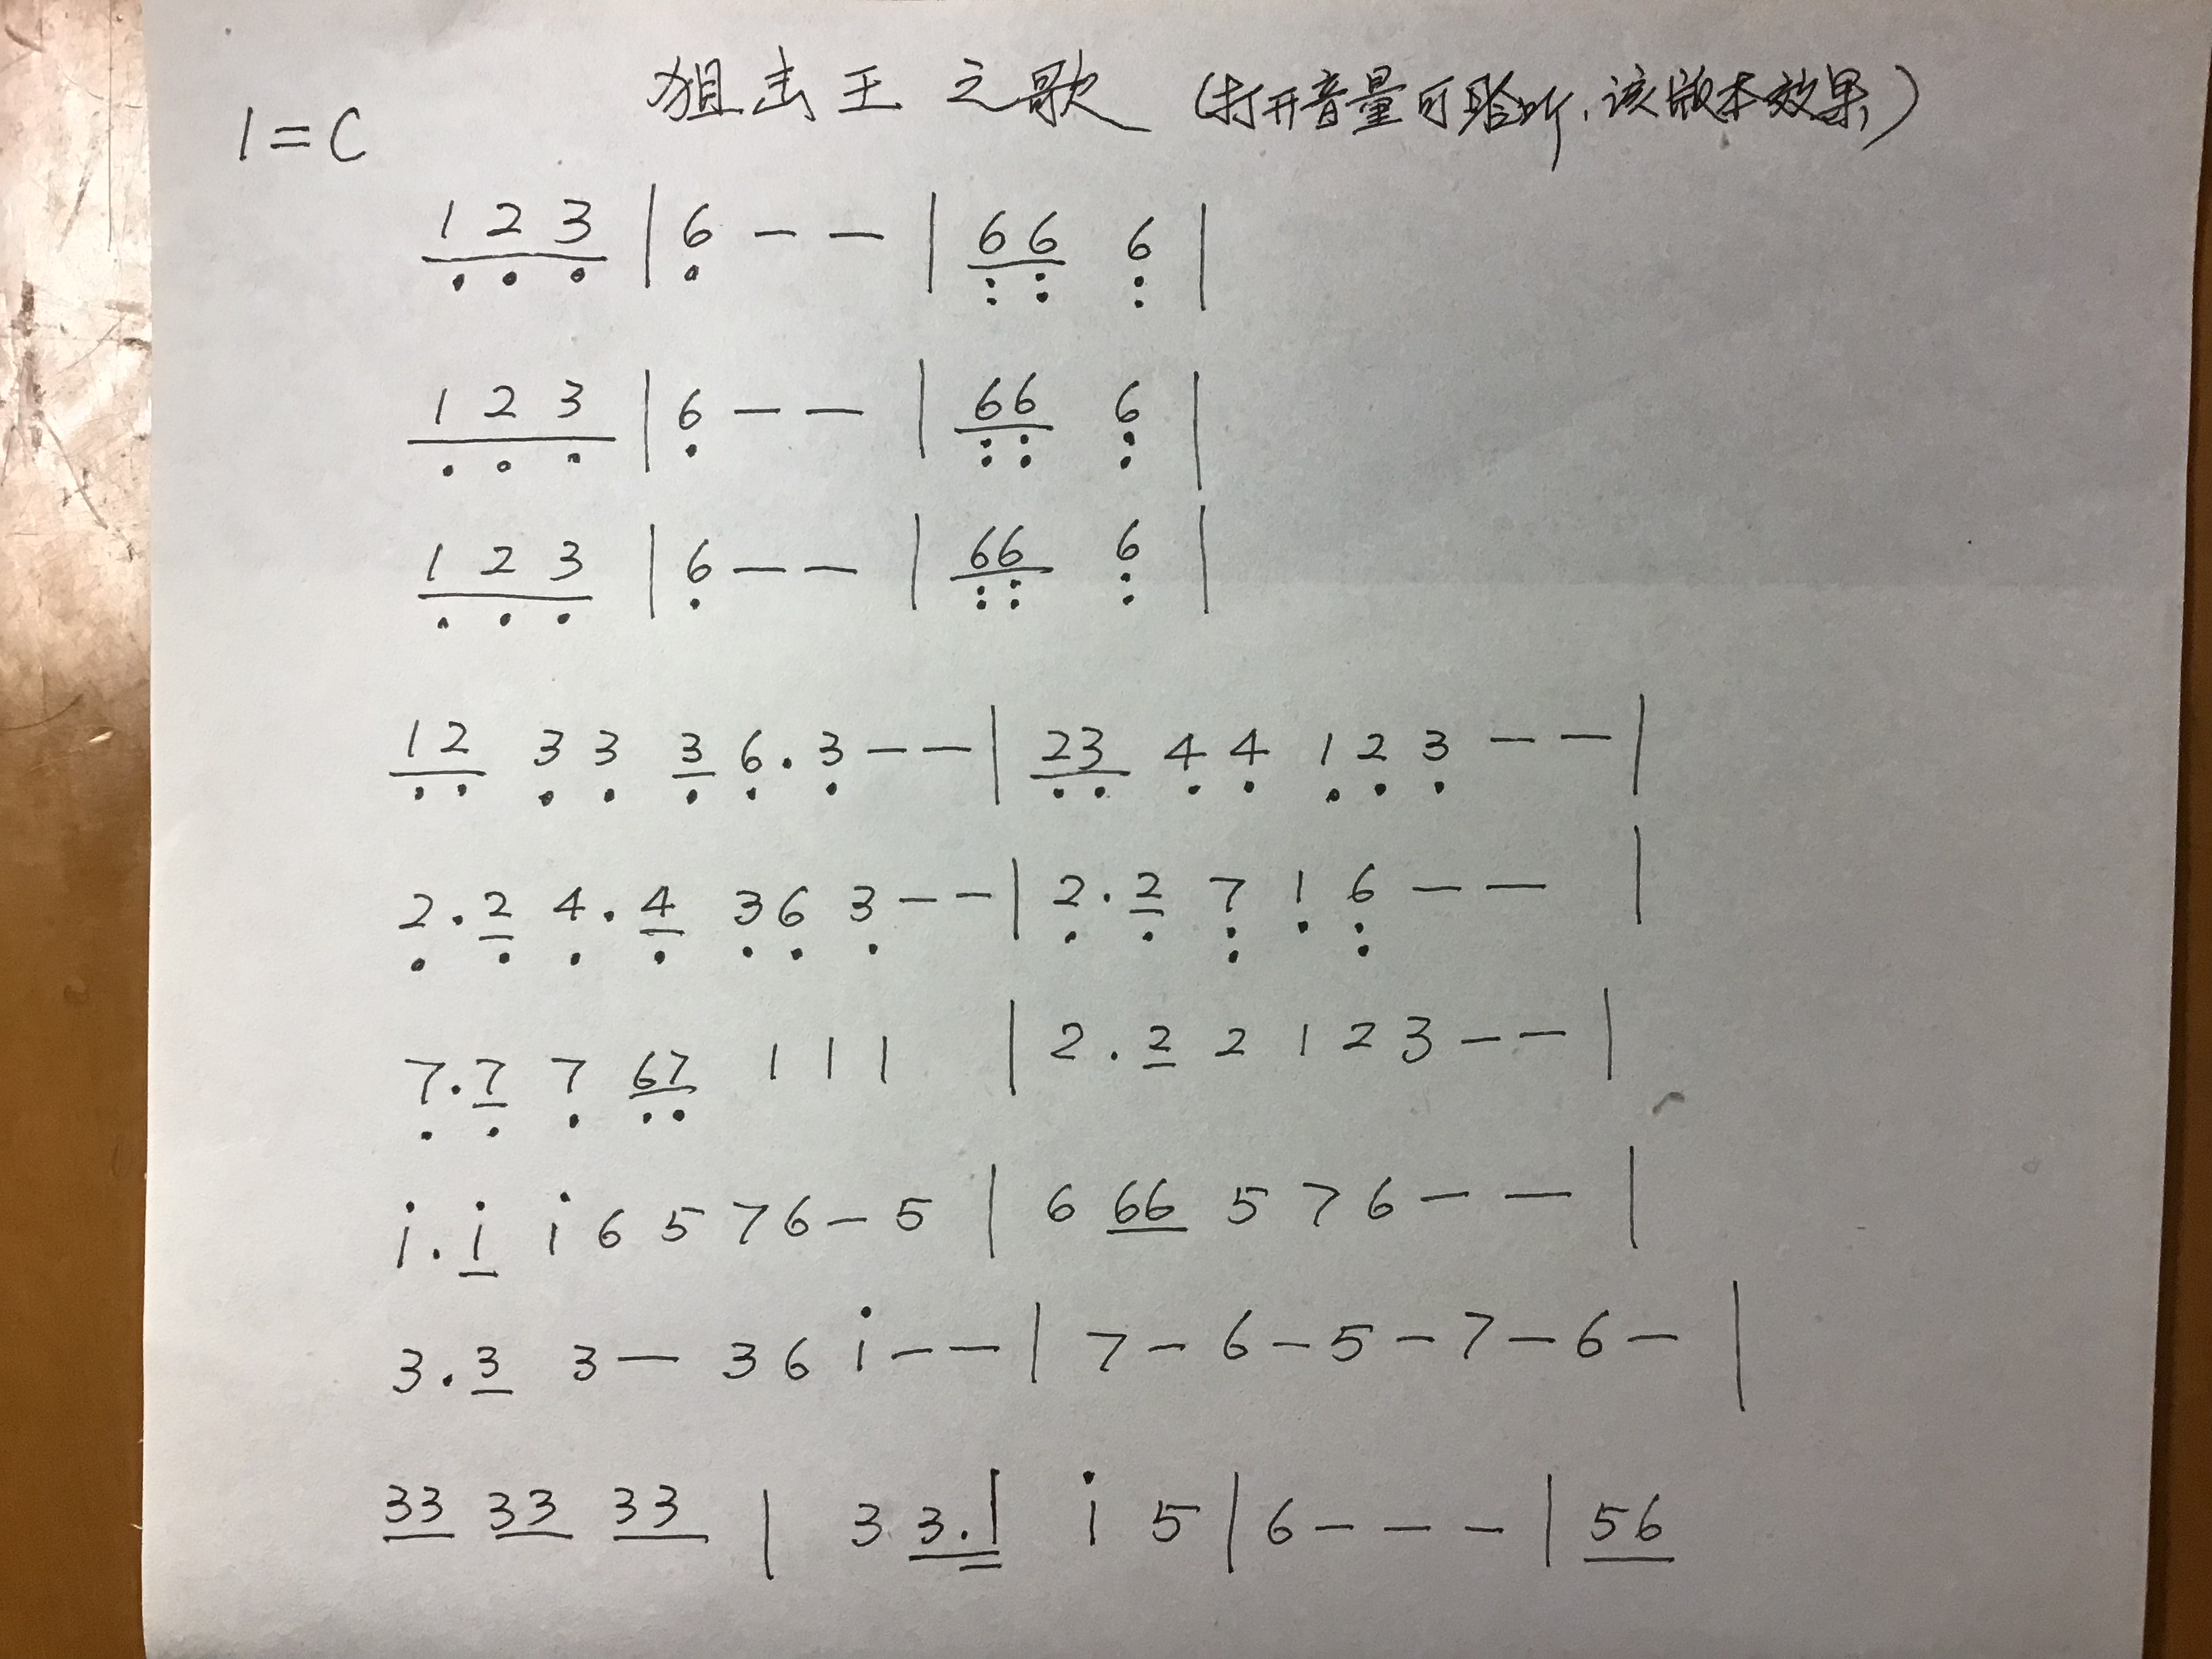 狙击王之歌 (打开音量可聆听,该版本效果)
1=C
1 2 3 | 6 — — | 66 6 |
1 2 3 | 6 — — | 66 6 |
1 2 3 | 6 — — | 66 6 |
12 3 3 3 6 . 3 — — | 23 4 4 1 2 3 — — |
2 . 2 4 . 4 3 6 3 — — | 2 . 2 7 1 6 — — |
7 . 7 7 67 1 1 1 | 2 . 2 2 1 2 3 — — |
i . i i 6 5 7 6 — 5 | 6 66 5 7 6 — — |
3 . 3 3 — 3 6 i — — | 7 — 6 — 5 — 7 — 6 — |
33 33 33 | 3 3.1 i 5 | 6 — — — | 56